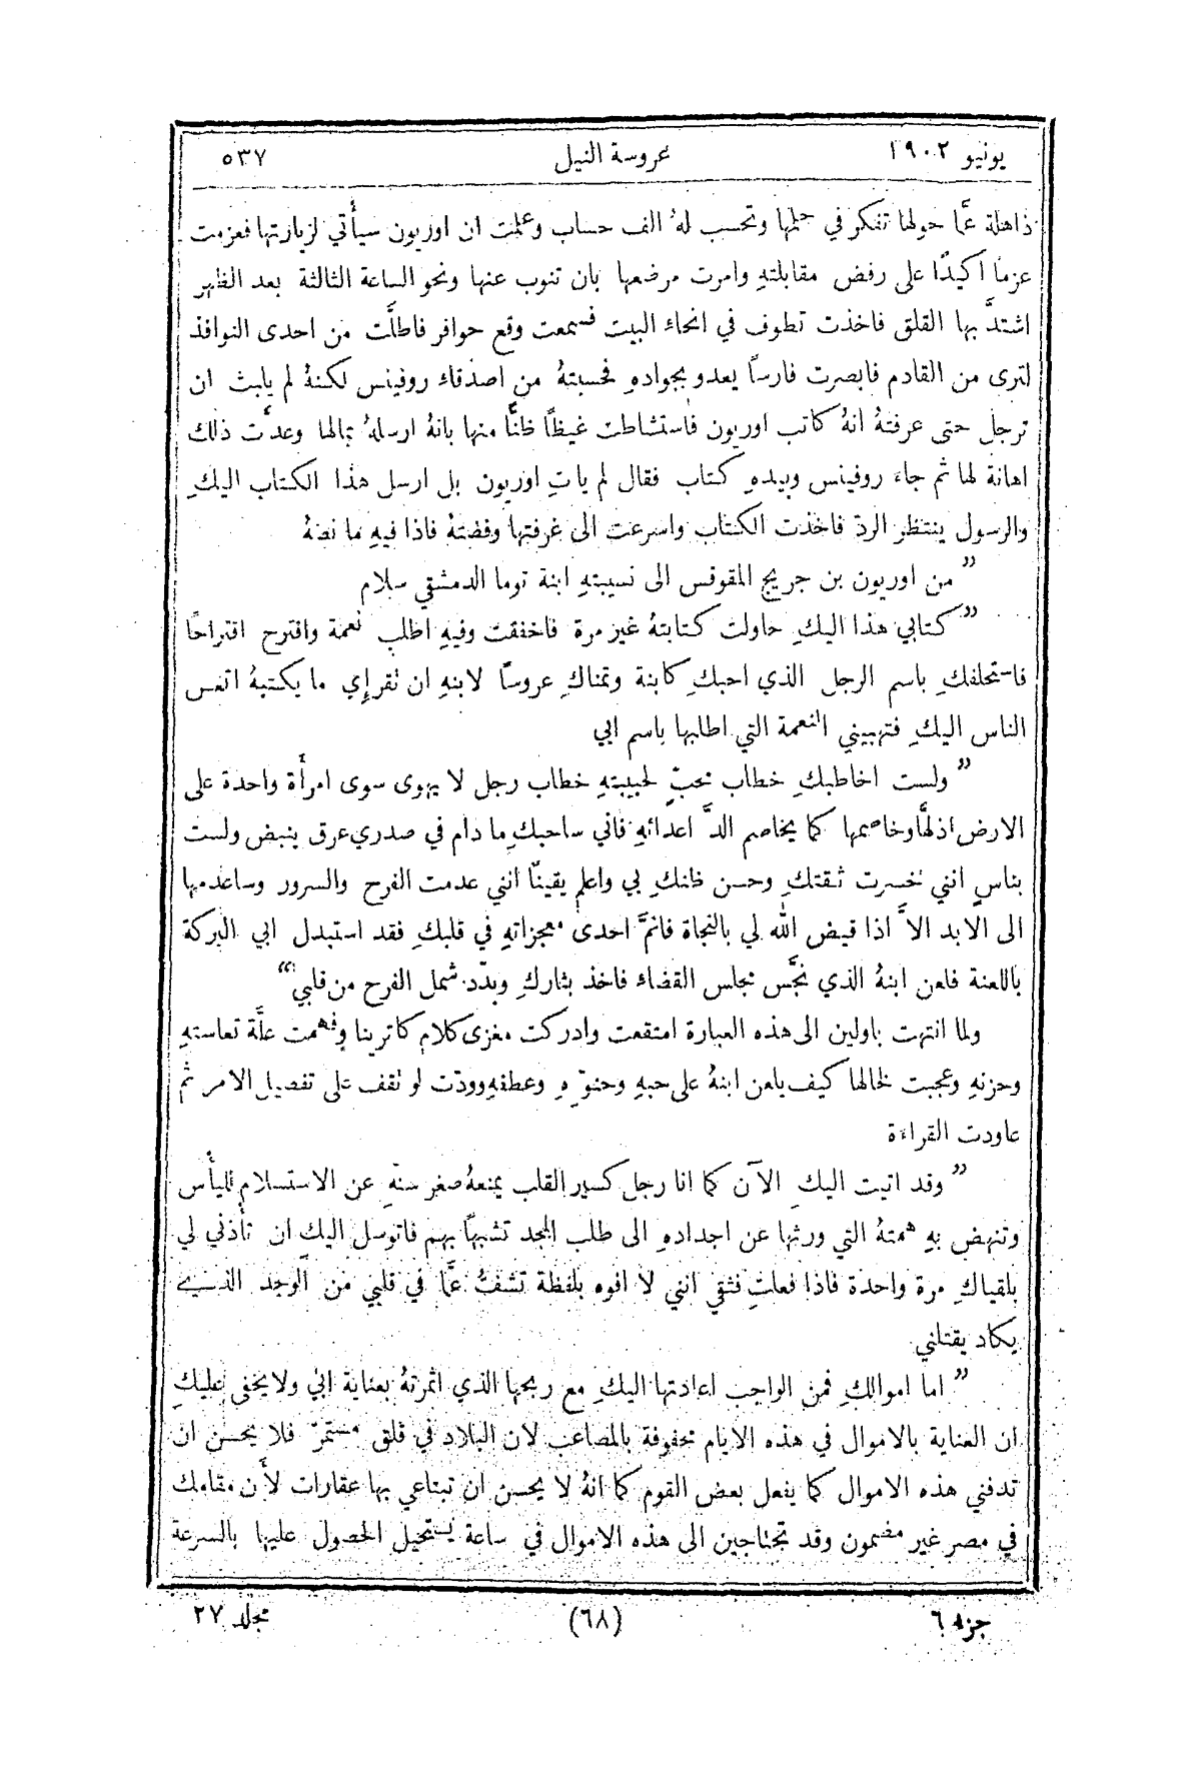 يونيو ١٩٠٢
عروسة النيل
٥٣٧
ذاهلة عمَّا حولها تفكر في حلمها وتحسب لهُ الف حساب وعلمت ان اوريون سيأتي لزيارتها فعزمت
عزمًا اكيدًا على رفض مقابلتهِ وامرت مرضعها بان تنوب عنها ونحو الساعة الثالثة بعد الظهر
اشتدَّ بها القلق فاخذت تطوف في انحاء البيت فسمعت وقع حوافر فاطلَّت من احدى النوافذ
لترى من القادم فابصرت فارسًا يعدو بجوادهِ فحسبتهُ من اصدقاء روفينس لكنهُ لم يلبث ان
ترجل حتى عرفتهُ انهُ كاتب اوريون فاستشاطت غيظًا ظنًّا منها بانهُ ارسلهُ بمالها وعدَّت ذلك
اهانة لها ثم جاء روفينس وبيدهِ كتاب فقال لم ياتِ اوريون بل ارسل هذا الكتاب اليكِ
والرسول ينتظر الردّ فاخذت الكتاب واسرعت الى غرفتها وفضتهُ فاذا فيهِ ما نصهُ
” من اوريون بن جريج المقوقس الى نسيبتهِ ابنة توما الدمشقي سلام
” كتابي هذا اليكِ حاولت كتابتهُ غير مرة فاخفقت وفيهِ اطلب نعمة واقترح اقتراحًا
فاستحلفكِ باسم الرجل الذي احبكِ كابنة وتمناكِ عروسًا لابنهِ ان نقراءِي ما يكتبهُ اتعس
الناس اليكِ فتهبيني النعمة التي اطلبها باسم ابي
” ولست اخاطبكِ خطاب محبّ لحبيبتهِ خطاب رجل لا يهوى سوى امرأَة واحدة على
الارض اذلهَّا وخاصمها كما يخاصم الدَّ اعدائهِ فاني ساحبكِ ما دام في صدري عرق ينبض ولست
بناسٍ انني خسرت ثقتكِ وحسن ظنكِ بي واعلم يقينًا انني عدمت الفرح والسرور وساعدمها
الى الابد الاَّ اذا قيض الله لي بالنجاة فاتمَّ احدى معجزاتهِ في قلبكِ فقد استبدل ابي البركة
باللعنة فلعن ابنهُ الذي نجَّس مجلس القضاء فاخذ بثاركِ وبدّد شمل الفرح من قلبي“
ولما انتهت باولين الى هذه العبارة امتقعت وادركت مغزى كلام كاترينا وفهمت علَّة تعاستهِ
وحزنهِ وعجبت لخالها كيف يلعن ابنهُ على حبهِ وحنوّهِ وعطفهِ وودّت لو نقف على تفصيل الامر ثم
عاودت القراءة
” وقد اتيت اليكِ الآن كما انا رجل كسير القلب يمنعهُ صغر سنهِ عن الاستسلام لليأَس
وتنهض بهِ همتهُ التي ورثها عن اجدادهِ الى طلب المجد تشبهًا بهم فاتوسل اليك ان تأذني لي
بلقياكِ مرة واحدة فاذا فعلتِ فثقي انني لا افوه بلفظة تشفُّ عمَّا في قلبي من الوجد الذي
يكاد يقتلني
” اما اموالكِ فمن الواجب اعادتها اليكِ مع ربحها الذي اثمرتهُ بعناية ابي ولا يخفى عليكِ
ان العناية بالاموال في هذه الايام محفوفة بالمصاعب لان البلاد في قلق مستمرّ فلا يحسن ان
تدفني هذه الاموال كما يفعل بعض القوم كما انهُ لا يحسن ان تبتاعي بها عقارات لأَن مقامك
في مصر غير مضمون وقد تحتاجين الى هذه الاموال في ساعة يستحيل الحصول عليها بالسرعة
جزء ٦
(٦٨)
مجلد ٢٧